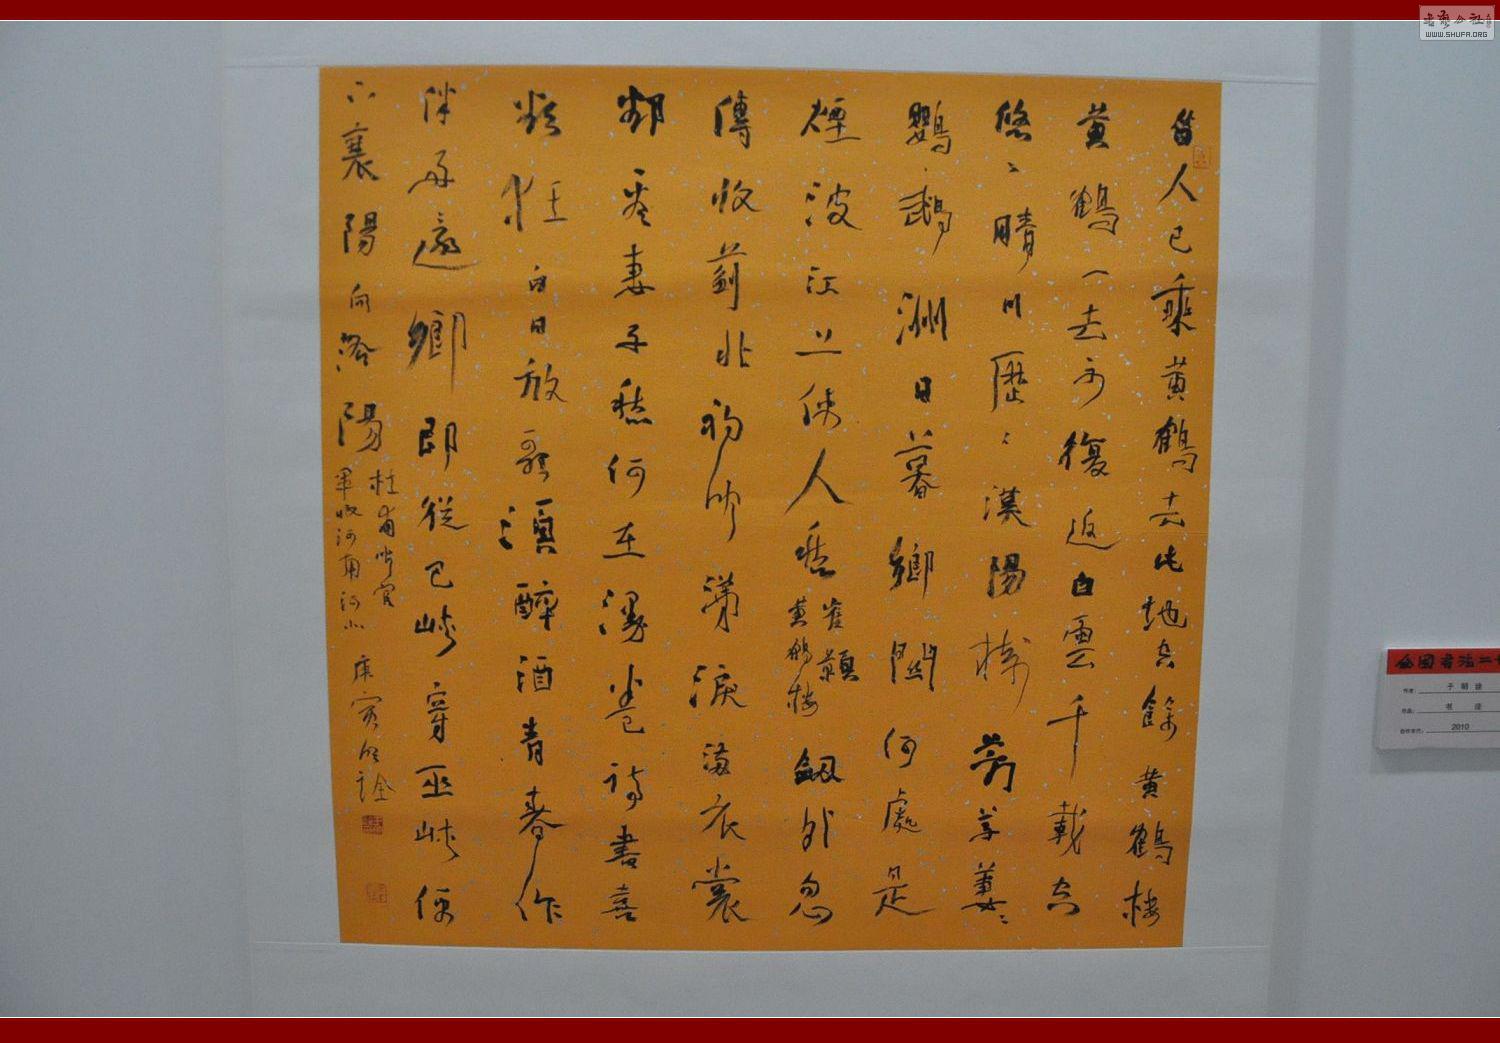 昔人已乘黃鶴去此地空餘黃鶴樓
黃鶴一去不復返白雲千載空
悠〻晴川歷〻漢陽樹芳草萋〻
鸚鵡洲日暮鄉關何處是
煙波江上使人愁
崔顥
黃鶴樓
劍外忽
傳收薊北初聞涕淚滿衣裳
卻看妻子愁何在漫卷詩書喜
欲狂白日放歌須醉酒青春作
伴好還鄉即從巴峽穿巫峽便
下襄陽向洛陽
杜甫聞官
軍收河南河北
庚寅明詮
全国书法二十
作者： 于明诠
作品： 书法
创作年代： 2010
WWW.SHUFA.ORG